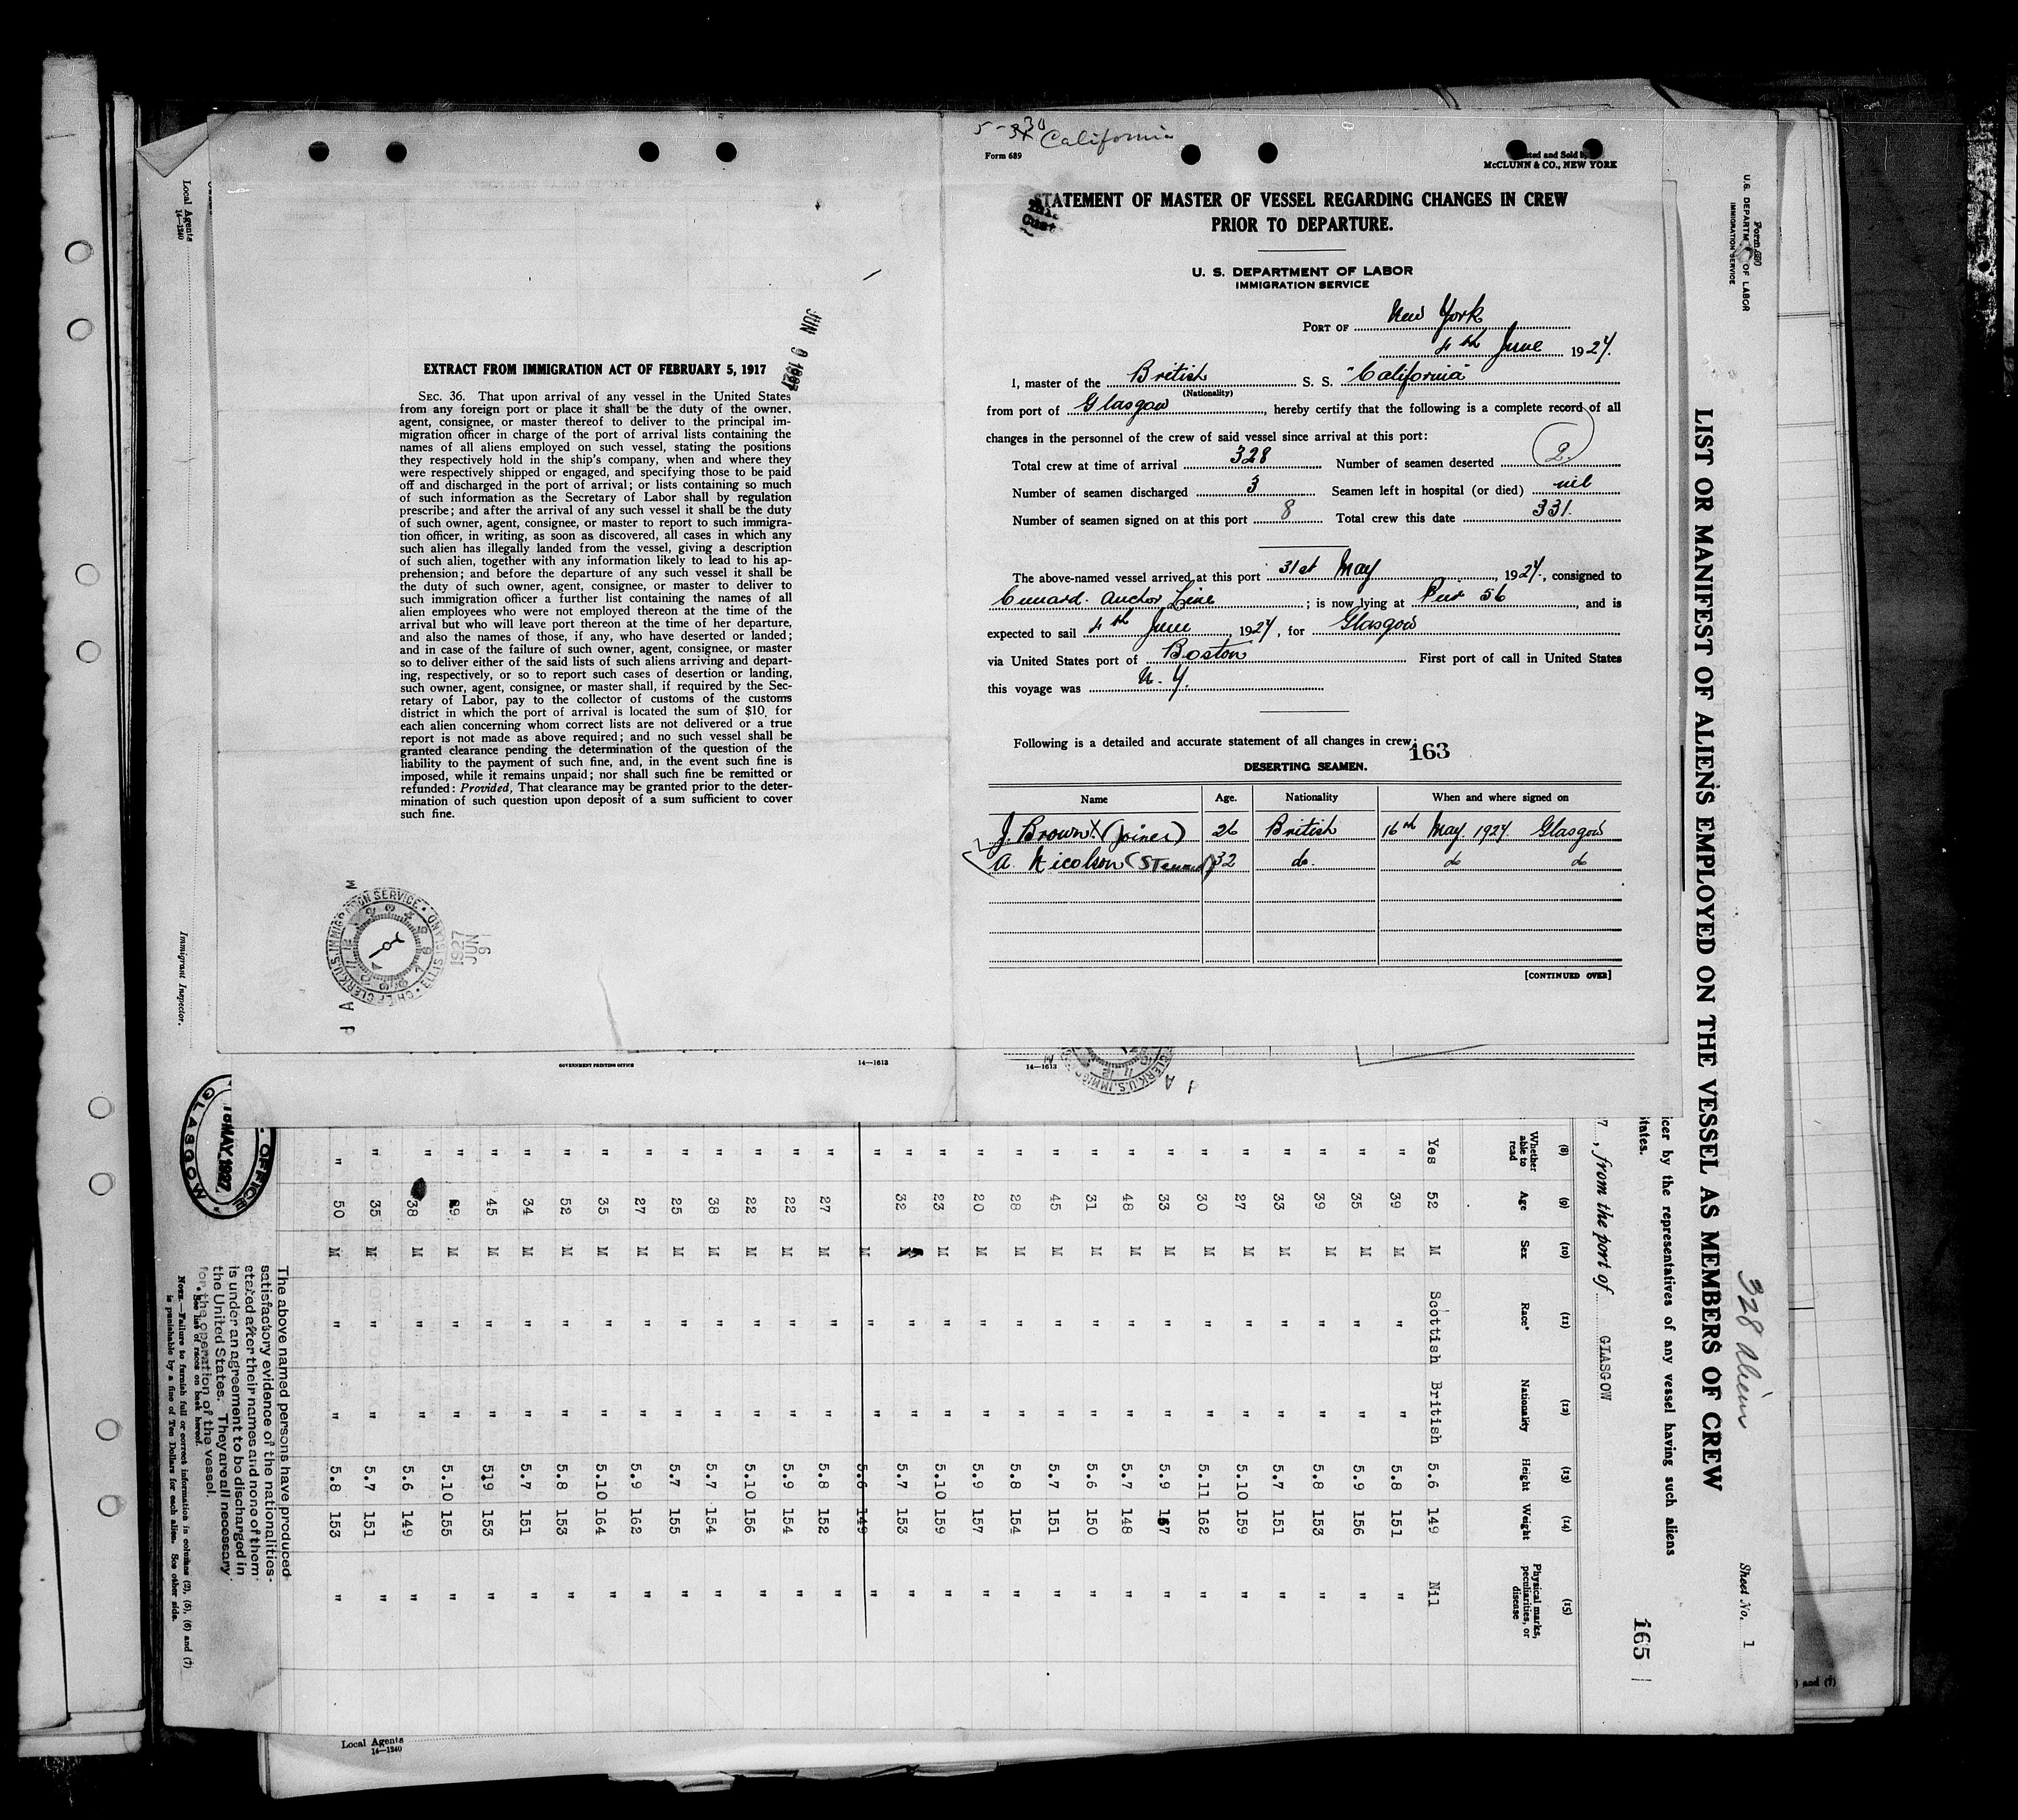 5-30 California
Form 689
McCLUNN & CO., NEW YORK
STATEMENT OF MASTER OF VESSEL REGARDING CHANGES IN CREW
PRIOR TO DEPARTURE.
U. S. DEPARTMENT OF LABOR
IMMIGRATION SERVICE
PORT OF New York
4th June 1927.
I, master of the British S. S. "California"
(Nationality)
from port of Glasgow, hereby certify that the following is a complete record of all
changes in the personnel of the crew of said vessel since arrival at this port:
Total crew at time of arrival 328 Number of seamen deserted 2.
Number of seamen discharged 3 Seamen left in hospital (or died) nil
Number of seamen signed on at this port 8 Total crew this date 331.
The above-named vessel arrived at this port 31st May, 1927., consigned to
Cunard. Anchor Line; is now lying at Pier 56, and is
expected to sail 4th June, 1927, for Glasgow
via United States port of Boston First port of call in United States
this voyage was N. Y.
Following is a detailed and accurate statement of all changes in crew:
163
DESERTING SEAMEN.
Name Age. Nationality When and where signed on
J. Brown X (Joiner) 26 British 16th May. 1927 Glasgow
A. Nicolson (Steward) 32 do. do do
[CONTINUED OVER]
JUN 9 1927
EXTRACT FROM IMMIGRATION ACT OF FEBRUARY 5, 1917
SEC. 36. That upon arrival of any vessel in the United States
from any foreign port or place it shall be the duty of the owner,
agent, consignee, or master thereof to deliver to the principal im-
migration officer in charge of the port of arrival lists containing the
names of all aliens employed on such vessel, stating the positions
they respectively hold in the ship's company, when and where they
were respectively shipped or engaged, and specifying those to be paid
off and discharged in the port of arrival; or lists containing so much
of such information as the Secretary of Labor shall by regulation
prescribe; and after the arrival of any such vessel it shall be the duty
of such owner, agent, consignee, or master to report to such immigra-
tion officer, in writing, as soon as discovered, all cases in which any
such alien has illegally landed from the vessel, giving a description
of such alien, together with any information likely to lead to his ap-
prehension; and before the departure of any such vessel it shall be
the duty of such owner, agent, consignee, or master to deliver to
such immigration officer a further list containing the names of all
alien employees who were not employed thereon at the time of the
arrival but who will leave port thereon at the time of her departure,
and also the names of those, if any, who have deserted or landed;
and in case of the failure of such owner, agent, consignee, or master
so to deliver either of the said lists of such aliens arriving and depart-
ing, respectively, or so to report such cases of desertion or landing,
such owner, agent, consignee, or master shall, if required by the Sec-
retary of Labor, pay to the collector of customs of the customs
district in which the port of arrival is located the sum of $10 for
each alien concerning whom correct lists are not delivered or a true
report is not made as above required; and no such vessel shall be
granted clearance pending the determination of the question of the
liability to the payment of such fine, and, in the event such fine is
imposed, while it remains unpaid; nor shall such fine be remitted or
refunded: Provided, That clearance may be granted prior to the deter-
mination of such question upon deposit of a sum sufficient to cover
such fine.
CHIEF CLERK U.S. IMMIGRATION SERVICE • ELLIS ISLAND
1927
JUN
9
GOVERNMENT PRINTING OFFICE
14—1613
14—1613
Form 680
U.S. DEPARTM OF LABOR
IMMIGRATION SERVICE
328 aliens
Sheet No. 1
LIST OR MANIFEST OF ALIENS EMPLOYED ON THE VESSEL AS MEMBERS OF CREW
icer by the representatives of any vessel having such aliens
tates.
165
7, from the port of GLASGOW
(8) (9) (10) (11) (12) (13) (14) (15)
Whether able to read Age Sex Race* Nationality Height Weight Physical marks, peculiarities, or disease
Yes 52 M Scottish British 5.6 149 Nil
" 39 M " " 5.8 151 "
" 35 M " " 5.9 156 "
" 39 M " " 5.8 153 "
" 33 M " " 5.7 151 "
" 27 M " " 5.10 159 "
" 30 M " " 5.11 162 "
" 33 M " " 5.9 157 "
" 48 M " " 5.7 148 "
" 31 M " " 5.6 150 "
" 45 M " " 5.7 151 "
" 28 M " " 5.8 154 "
" 20 M " " 5.9 157 "
" 23 M " " 5.10 159 "
" 32 M " " 5.7 153 "
" M " " 5.6 149 "
" 27 M " " 5.8 152 "
" 22 M " " 5.9 154 "
" 22 M " " 5.10 156 "
" 38 M " " 5.7 154 "
" 25 M " " 5.7 155 "
" 27 M " " 5.9 162 "
" 35 M " " 5.10 164 "
" 52 M " " 5.8 153 "
" 34 M " " 5.7 151 "
" 45 M " " 5.9 153 "
" 39 M " " 5.10 155 "
" 38 M " " 5.6 149 "
" 35 M " " 5.7 151 "
" 50 M " " 5.8 153 "
The above named persons have produced
satisfactory evidence of the nationalities
stated after their names and none of them
is under an agreement to be discharged in
the United States. They are all necessary
for the operation of the vessel.
* See list of races on back hereof.
NOTE.—Failure to furnish full or correct information in columns (2), (5), (6) and (7)
is punishable by a fine of Ten Dollars for each alien. See other side.
OFFICE
16 MAY. 1927
GLASGOW
Local Agents
14—1240
Immigrant Inspector.
Local Agents
14—1240
) and (7)